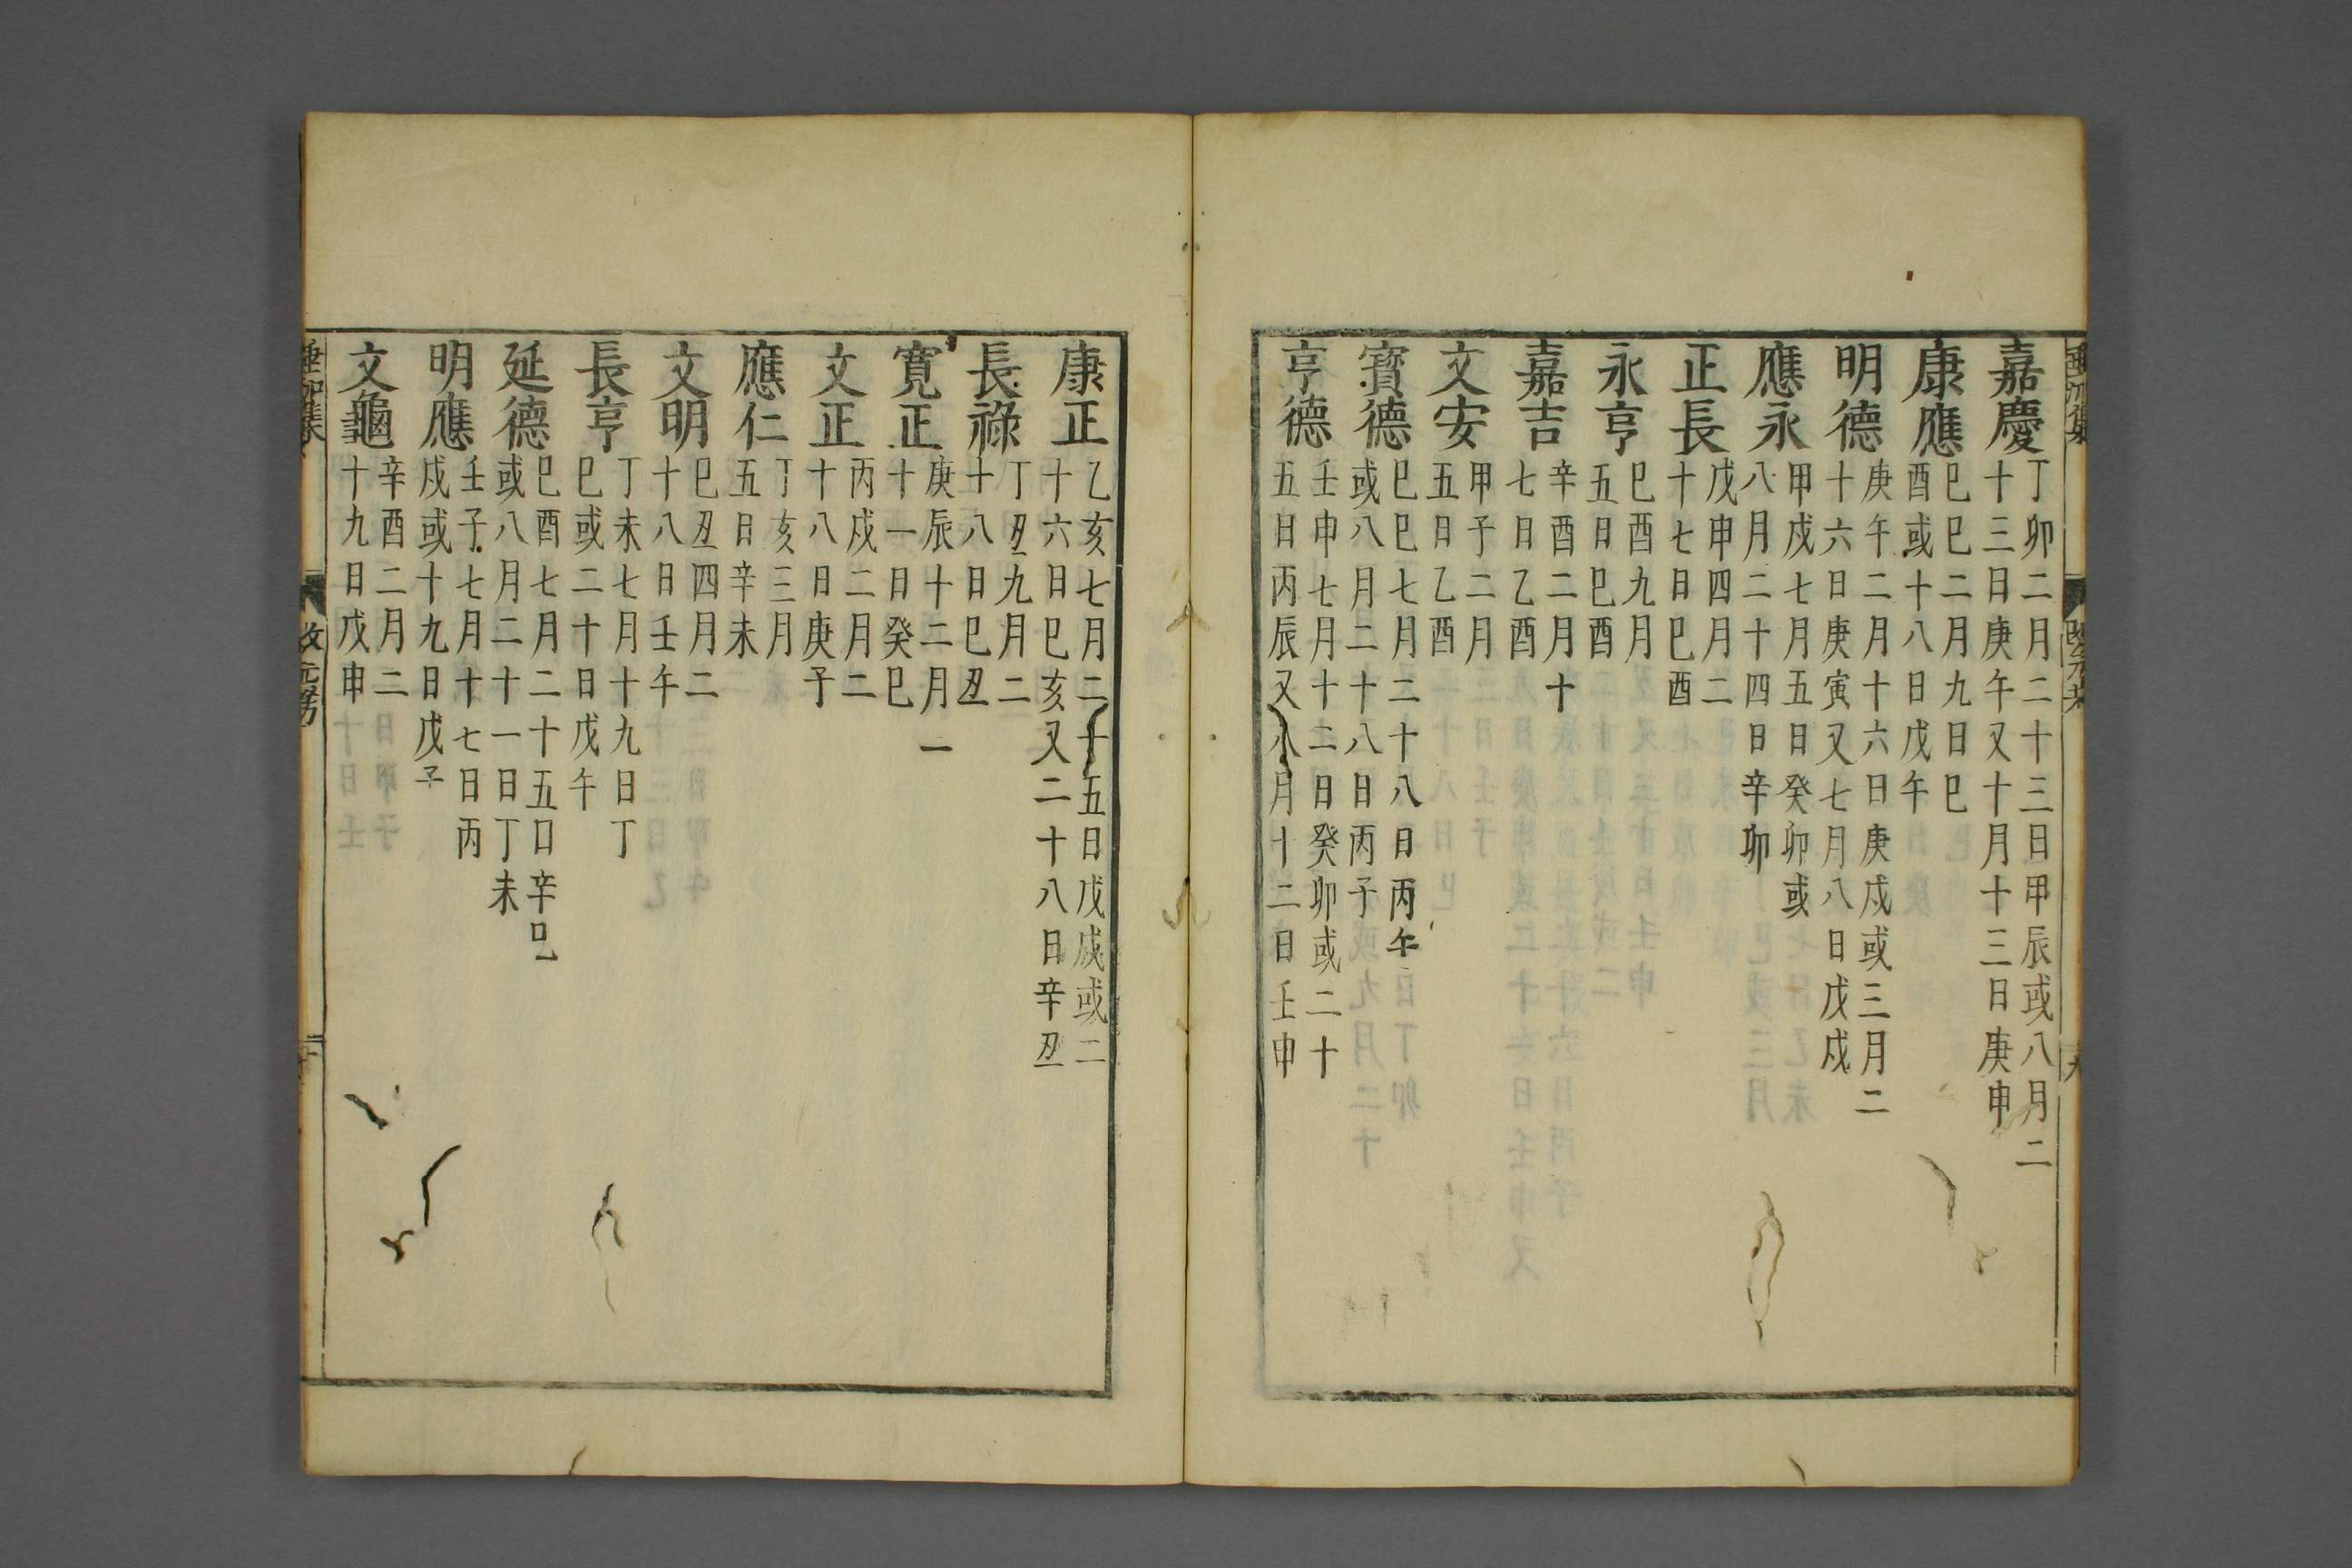 嘉慶
丁卯二月二十三日甲辰或八月二
十三日庚午又十月十三日庚申
康應
巳巳二月九日巳
酉或十八日戊午
明德
庚午二月十六日庚戌或三月二
十六日庚寅又七月八日戊戌
應永
甲戌七月五日癸卯或
八月二十四日辛卯
正長
戊申四月二
十七日巳酉
永亨
巳酉九月
五日巳酉
嘉吉
辛酉二月十
七日乙酉
文安
甲子二月
五日乙酉
寶德
巳巳七月二十八日丙午
或八月二十八日丙子
亨德
壬申七月十二日癸卯或二十
五日丙辰又八月十二日壬申
康正
乙亥七月二十五日戊戌或二
十六日巳亥又二十八日辛丑
長祿
丁丑九月二
十八日巳丑
寛正
庚辰十二月一
十一日癸巳
文正
丙戌二月二
十八日庚子
應仁
丁亥三月
五日辛未
文明
巳丑四月二
十八日壬午
長亨
丁未七月十九日丁
巳或二十日戊午
延德
巳酉七月二十五日辛巳
或八月二十一日丁未
明應
壬子七月十七日丙
戌或十九日戊子
文龜
辛酉二月二
十九日戊申